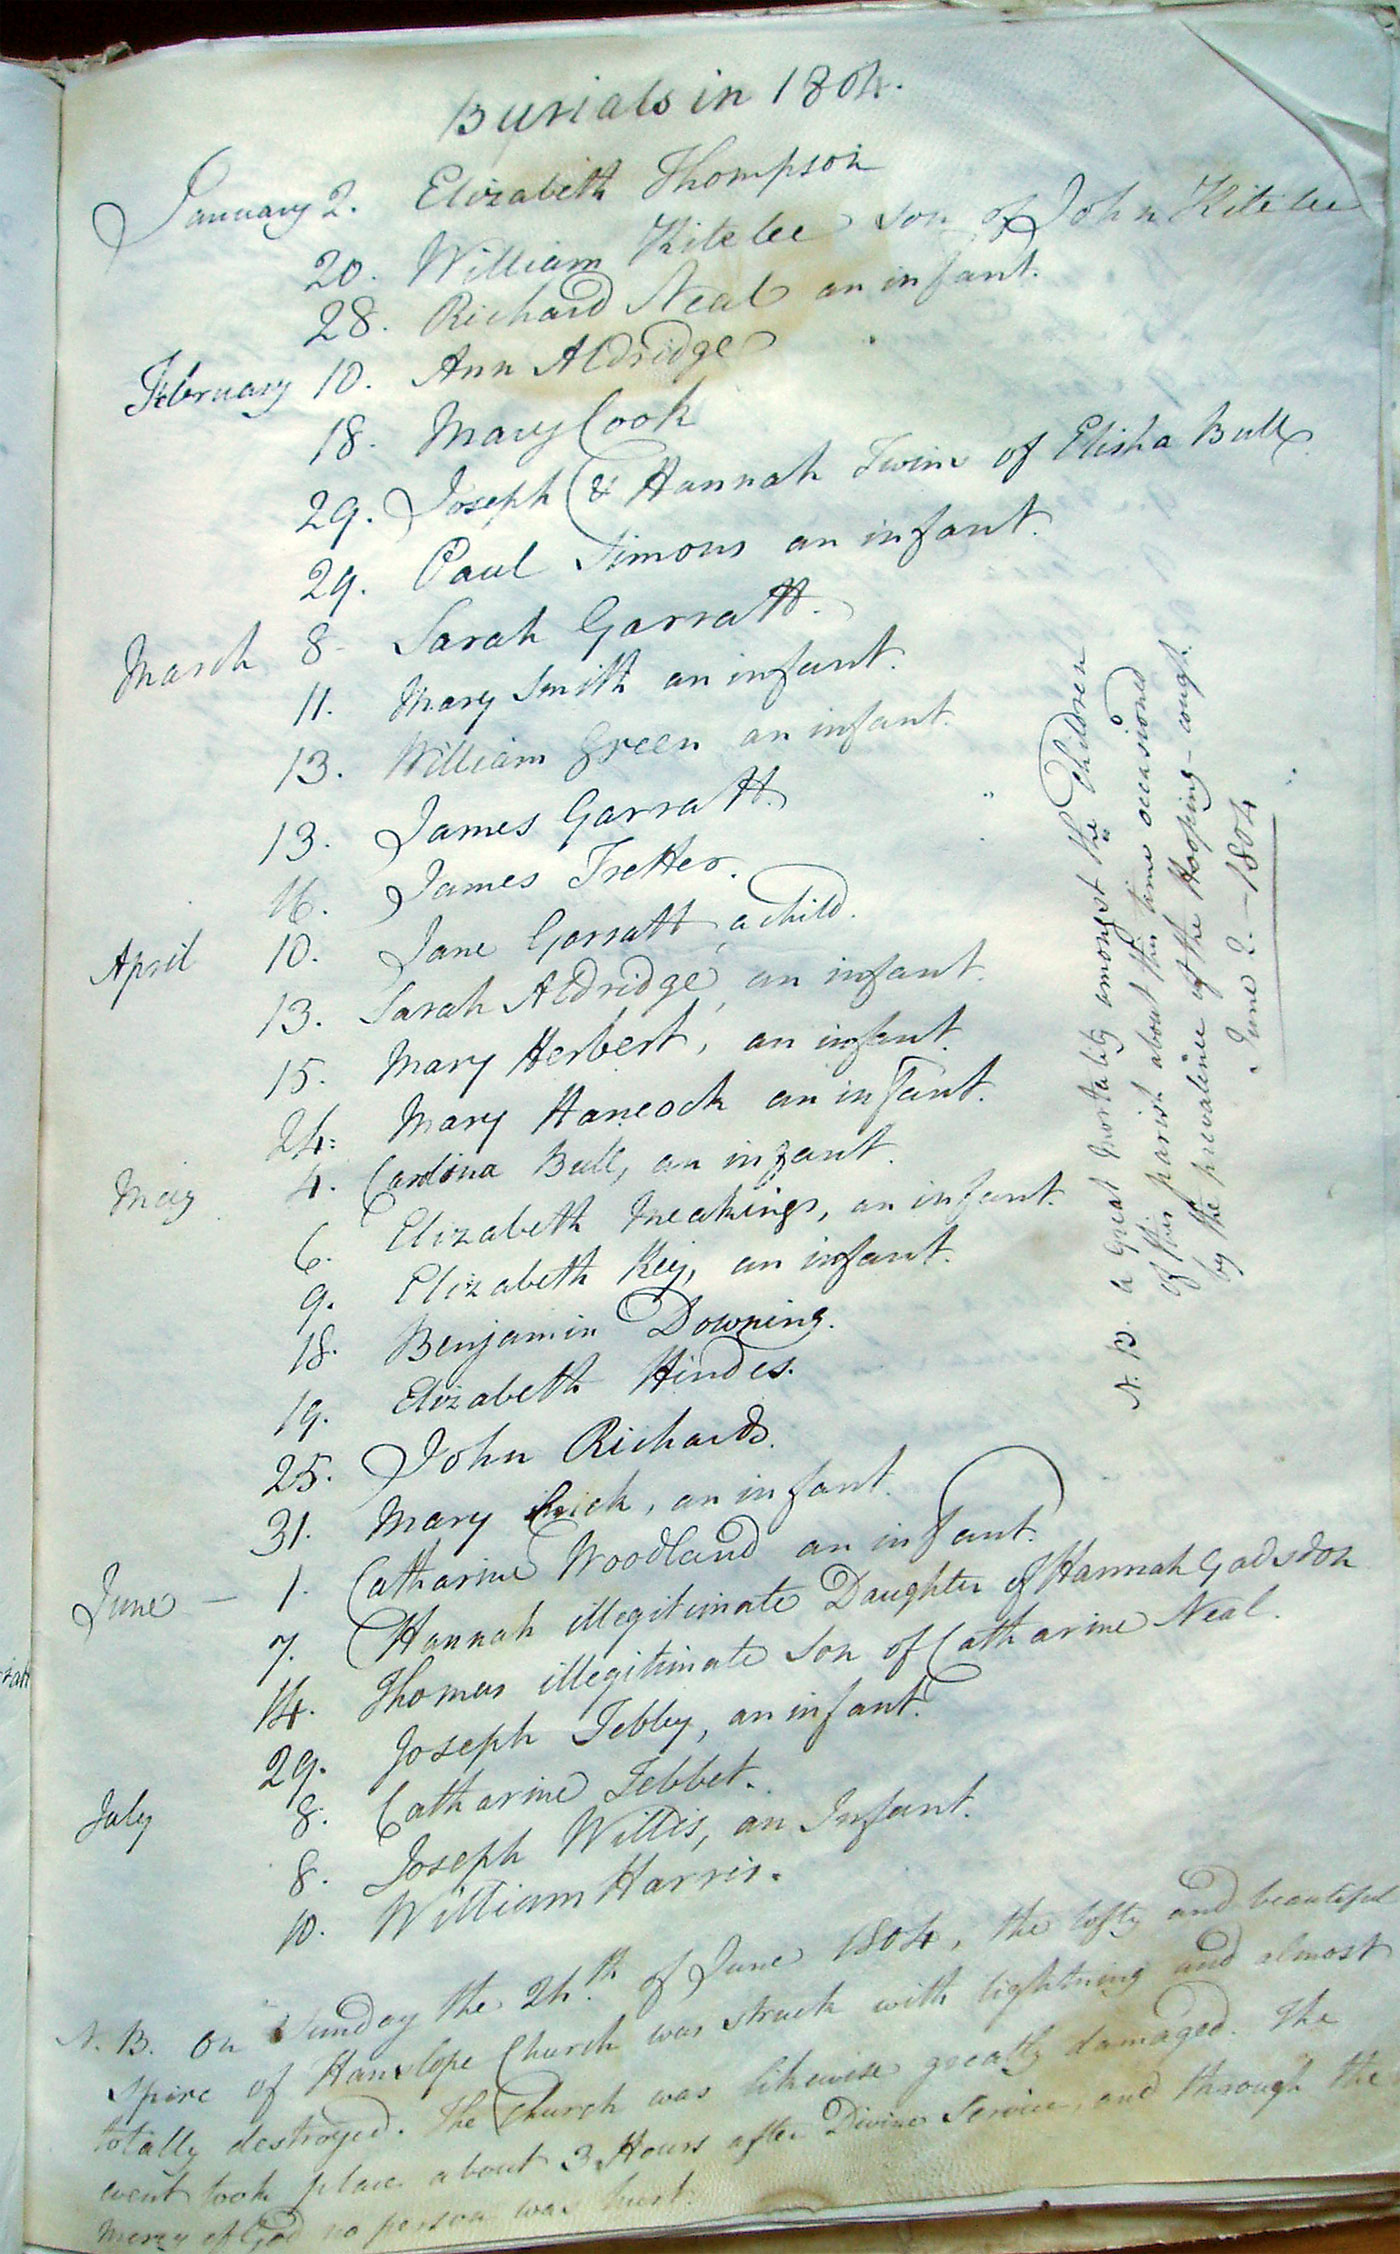 Burials in 1804.
January 2. Elizabeth Thompson
20. William Kitelee son of John Kitelee
28. Richard Neal an infant.
February 10. Ann Aldridge
18. Mary Cook
29. Joseph & Hannah Twins of Elisha Bull
29. Paul Simons an infant.
March 8 Sarah Garratt.
11. Mary Smith an infant.
13. William Green an infant.
13. James Garratt.
16. James Tretter.
April 10. Jane Garratt, a child.
13. Sarah Aldridge, an infant.
15. Mary Herbert, an infant.
24. Mary Hancock an infant.
May 4. Bull, an infant.
6. Elizabeth Meakings, an infant.
9. Elizabeth Key, an infant.
18. Benjamin Downing.
19. Elizabeth Hindes.
25. John Richards.
31. Mary an infant.
June — 1. Catharine Woodland an infant.
7. Hannah illegitimate Daughter of Hannah Gadsdon
14. Thomas illegitimate Son of Catharine Neal.
29. Joseph Tebby, an infant.
July 8. Catharine Tebbet.
8. Joseph Willis, an Infant.
10. William Harris.
N.B. a great mortality amongst the Children
of this parish about this time occasioned
by the prevalence of the Hooping-cough.
June 2. - 1804
N.B. On Sunday the 24th. of June 1804, the lofty and beautiful
Spire of Hanslope Church was struck with lightning and almost
totally destroyed. The Church was likewise greatly damaged. The
event took place about 3 Hours after Divine Service, and through the
mercy of God no person was hurt.